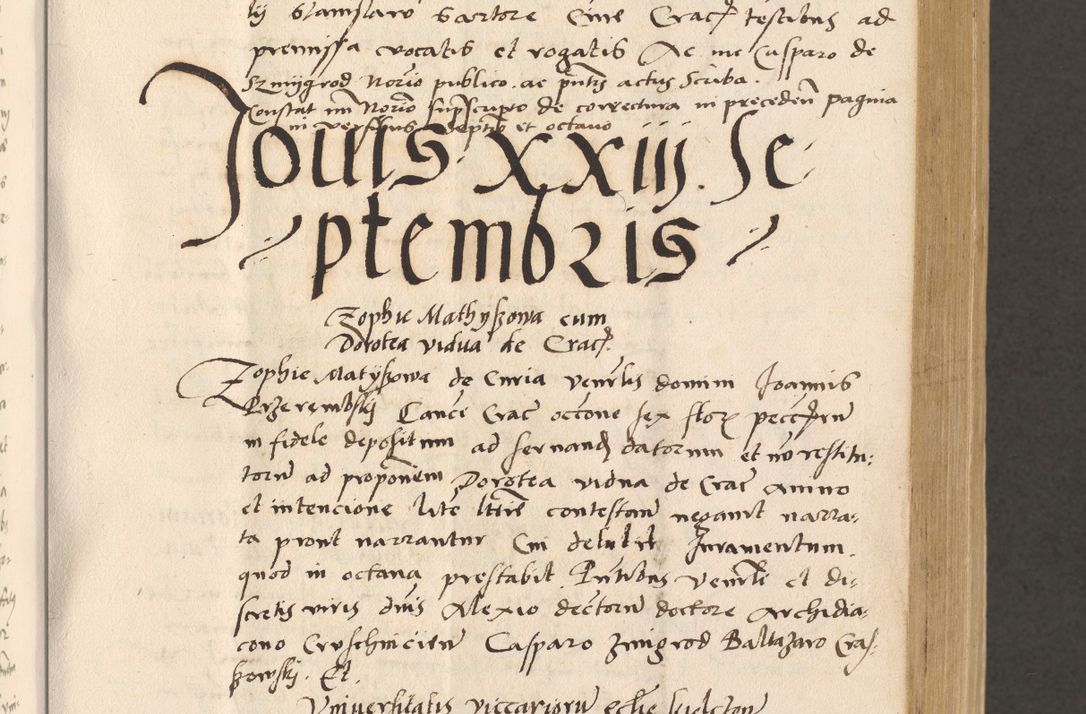 lij Stanislaro Sartore Cive Crac̃ testibus ad
premissa vocatis et rogatis Ac me Casparo de
Szmygrod Norio publico ac pñtis actus Scriba.
Constat mñ Norio supscripto de correctura in precedeñ pagina
in versibus septiõ et octavo
Jouis XXIII. Se
ptembris
Zophie Mathyszowa cum
Dorotea vidua de Crac̃.
Zophie Matyszowa de Curia venerlis domini Joannis
Przerembskij Canci Crac̃ occone sex flor̃ peccĩeñ
in fidele depositum ad servand̃ datorum et nõ restitu:
torũ ad proponem Dorotea vidua de Crac̃ animo
et intencione lite ltrẽ contestañ negavit narra:
ta prout narrantur Cui delulit Juramentum.
quod in octava prestabit Pntibus venerli et di:
scretis viris dnis Alexio decretorũ doctore Archidia:
cono Cruschvicieñ Casparo Zmigrod Baltazaro Gas:
kowskij. Et.
Vniversitatis viccariorũ eccle kielceñ